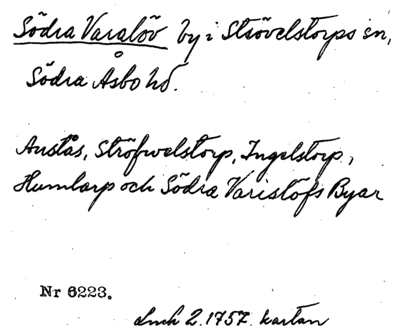 Södra Varalöv by i Strövelstorps sn,
Södra Åsbo hd.
Austås, Ströfwelstorp, Ingelstorp,
Humlarp och Södra Varistöfs Byar
Nr 6223.
2. 1757. kartan